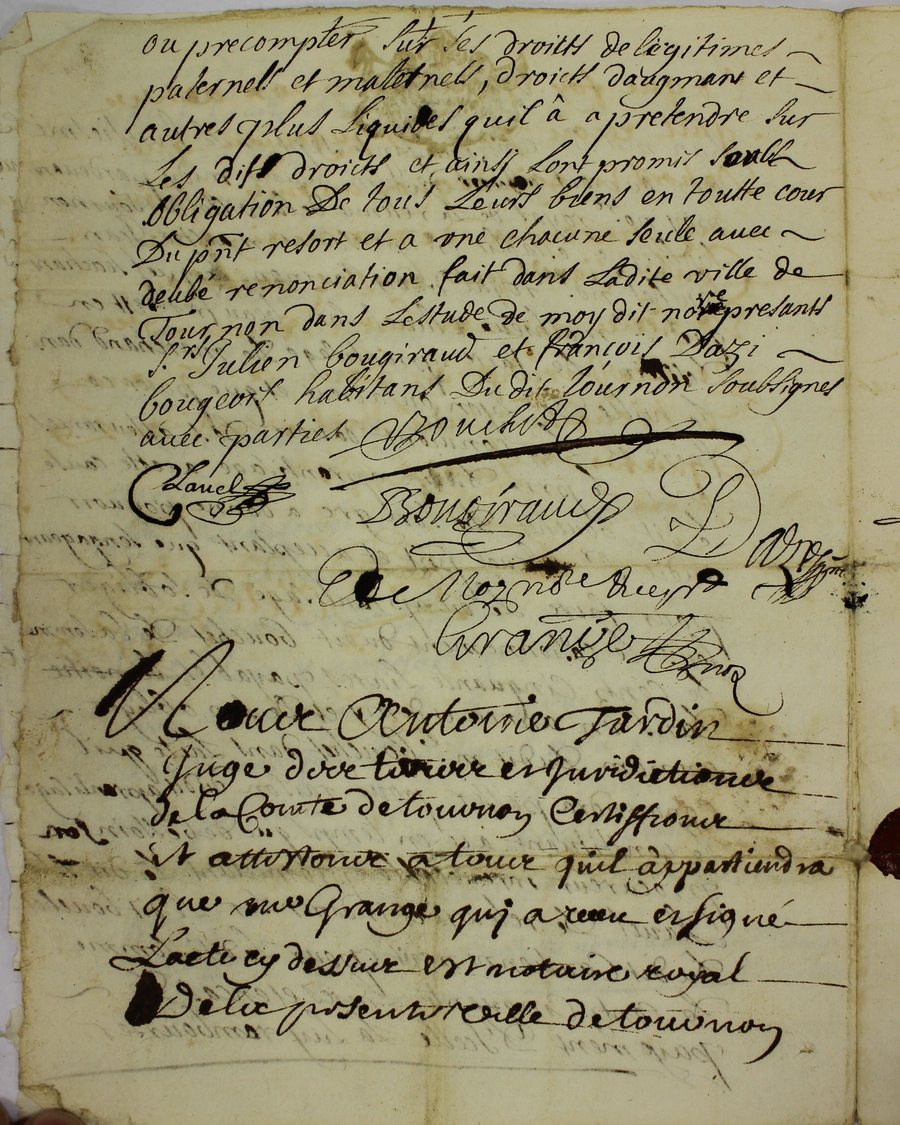 ou precompter sur ses droicts de legitimes
paternels et maternels, droicts daugmant et
autres plus liquides quil â a pretendre sur
Les dits droicts et ainsi Lont promis soubs
obligation De tous Leurs biens en toutte cour
Du pnt resort et a une chacune seule avec
deube renonciation fait dans Ladite ville de
Tournon dans Lestude de moy dit nore presants
Srs Julien bougiraud et françois Dazi
bougeois habitans Dudit tournon soubsignes
avec parties Bouchet
Clauel
Bougiraud D
Grange
Nous Antoine Jardin
Juge des et Juridictions
de la Comte de tournon Certiffions
et attestons a tous quil appartiendra
que me Grange qui a receu et signé
Lacte cy dessus est notaire royal
De la pnte ville de tournon